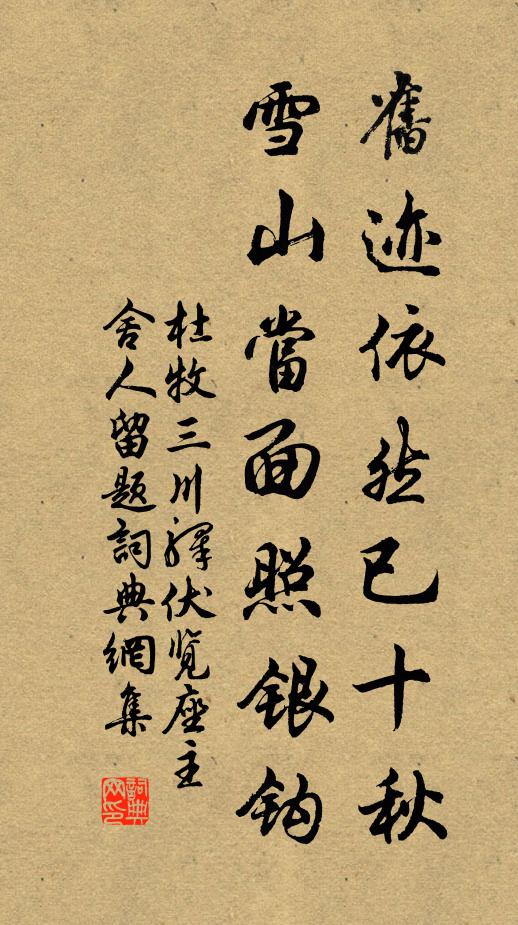 舊迹依然已十秋
雪山當面照銀鈎
杜牧三川驛伏覽座主
舍人留題詞典網集
詞典網印